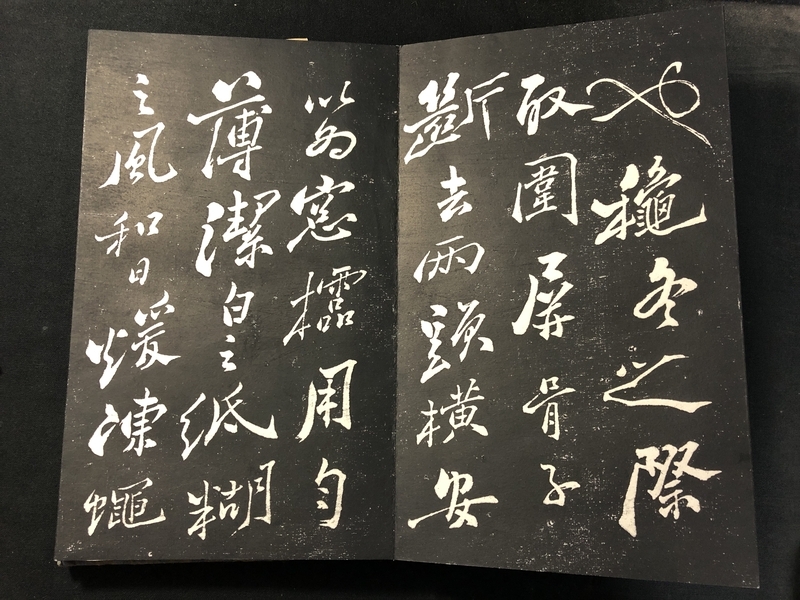 也穐冬之際
取圍屏骨子
斷去兩頭橫安
以為窓櫺用勻
薄潔白之紙糊
之風和日煖凍蠅